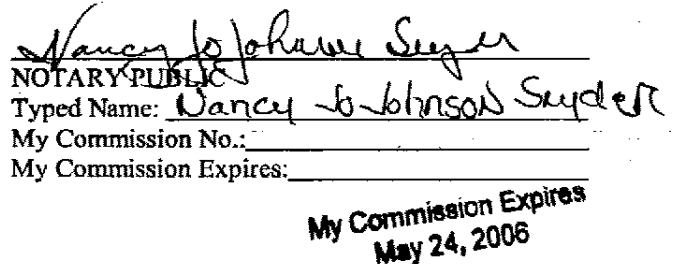 Nancy Jo Johnson Snyder
NOTARY PUBLIC
Typed Name: Nancy Jo Johnson Snyder
My Commission No.:
My Commission Expires:
My Commission Expires
May 24, 2006